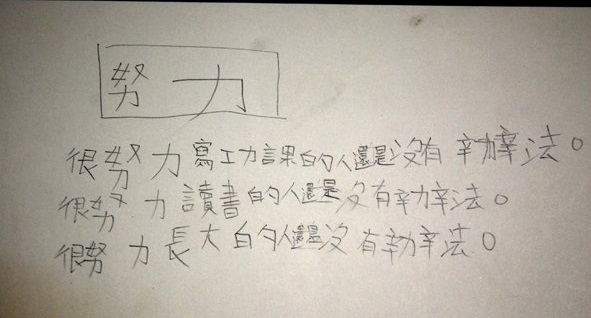 努力
很努力寫功課的人還是沒有辦法。
很努力讀書的人還是沒有辦法。
很努力長大的人還是沒有辦法。